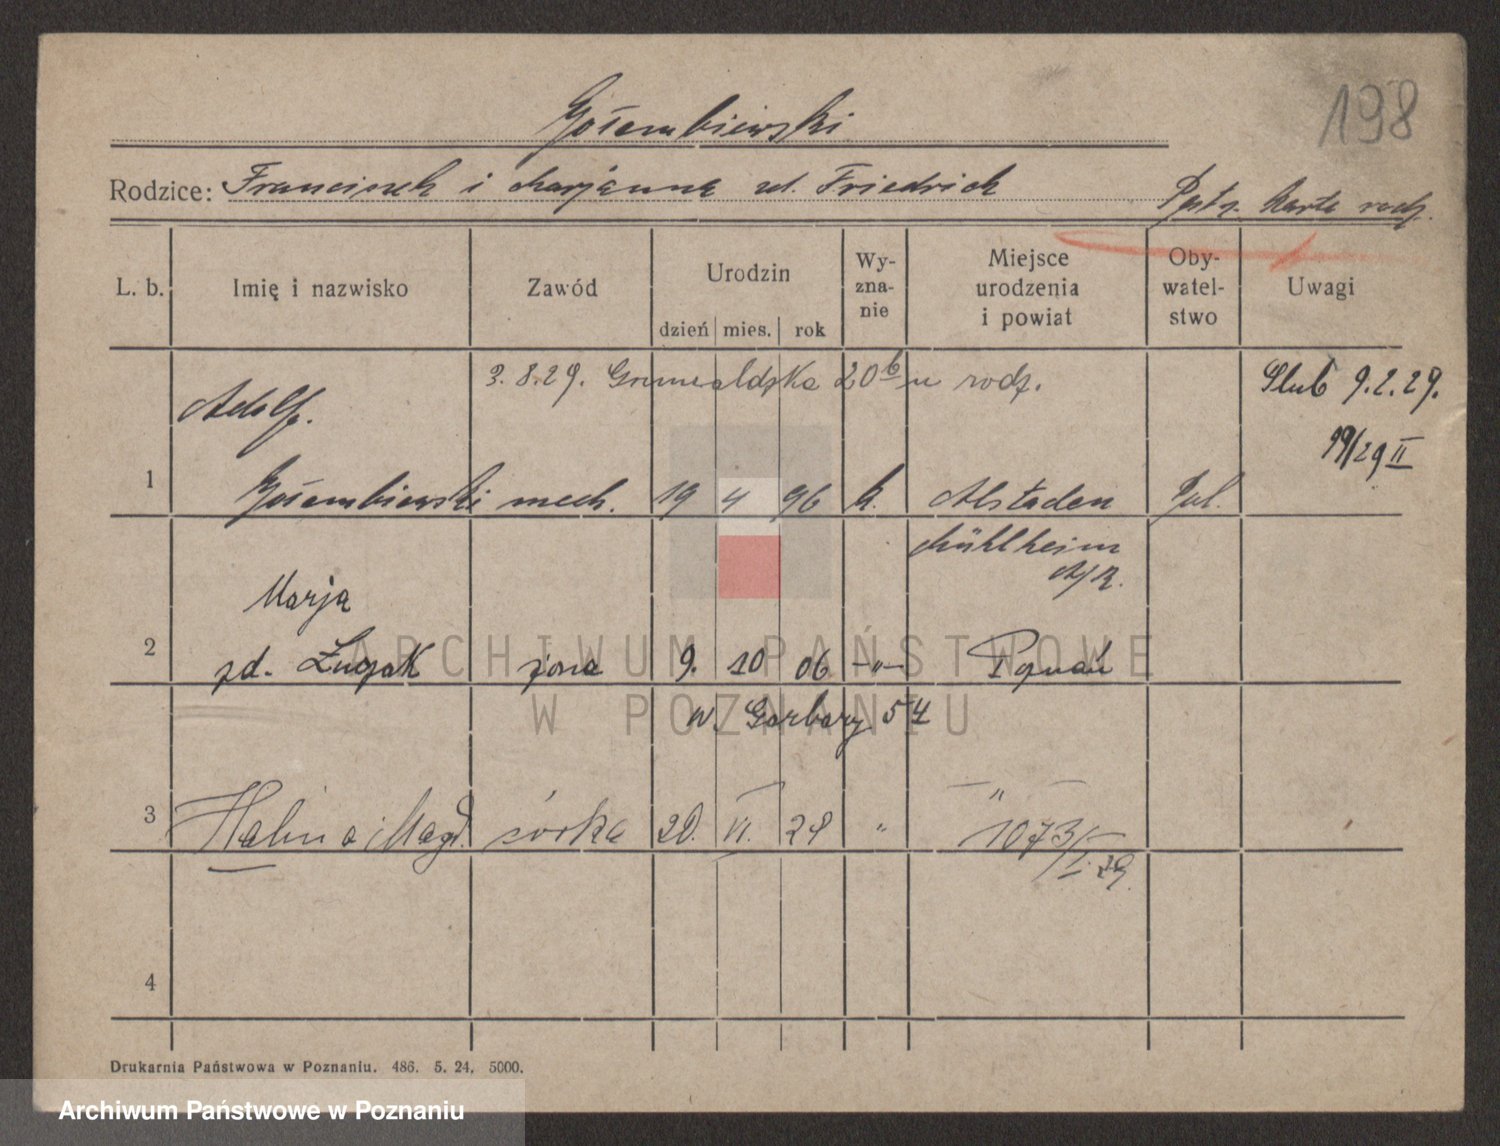 198
Gołembiewski
Rodzice: Franciszek i Marjanna zd. Friedrich
Patrz Karta rodz.
L. b. Imię i nazwisko Zawód Urodzin dzień mies. rok Wy-zna-nie Miejsce urodzenia i powiat Oby-watel-stwo Uwagi
3.8.29. Grunwaldzka 20b u rodz.
Ślub 9.2.29.
Adolf.
19/29 II
1 Gołembiewski mech. 19 4 96 k. Alstaden Pol.
Mühlheim
a/R.
Marja
2 zd. żona 9. 10 06 -"- Poznań
w. Garbary 54
"
3 Halina Magd. córka 20. VI. 29 " 1073/
I. 29.
4
Drukarnia Państwowa w Poznaniu. 486. 5. 24. 5000.
ARCHIWUM PAŃSTWOWE
W POZNANIU
Archiwum Państwowe w Poznaniu